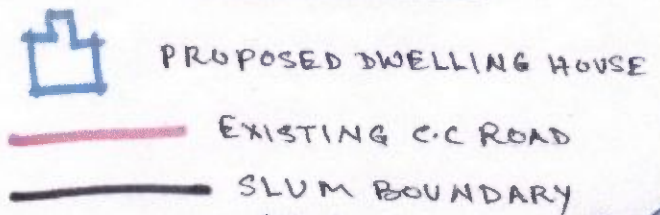 PROPOSED DWELLING HOUSE
EXISTING C.C ROAD
SLUM BOUNDARY